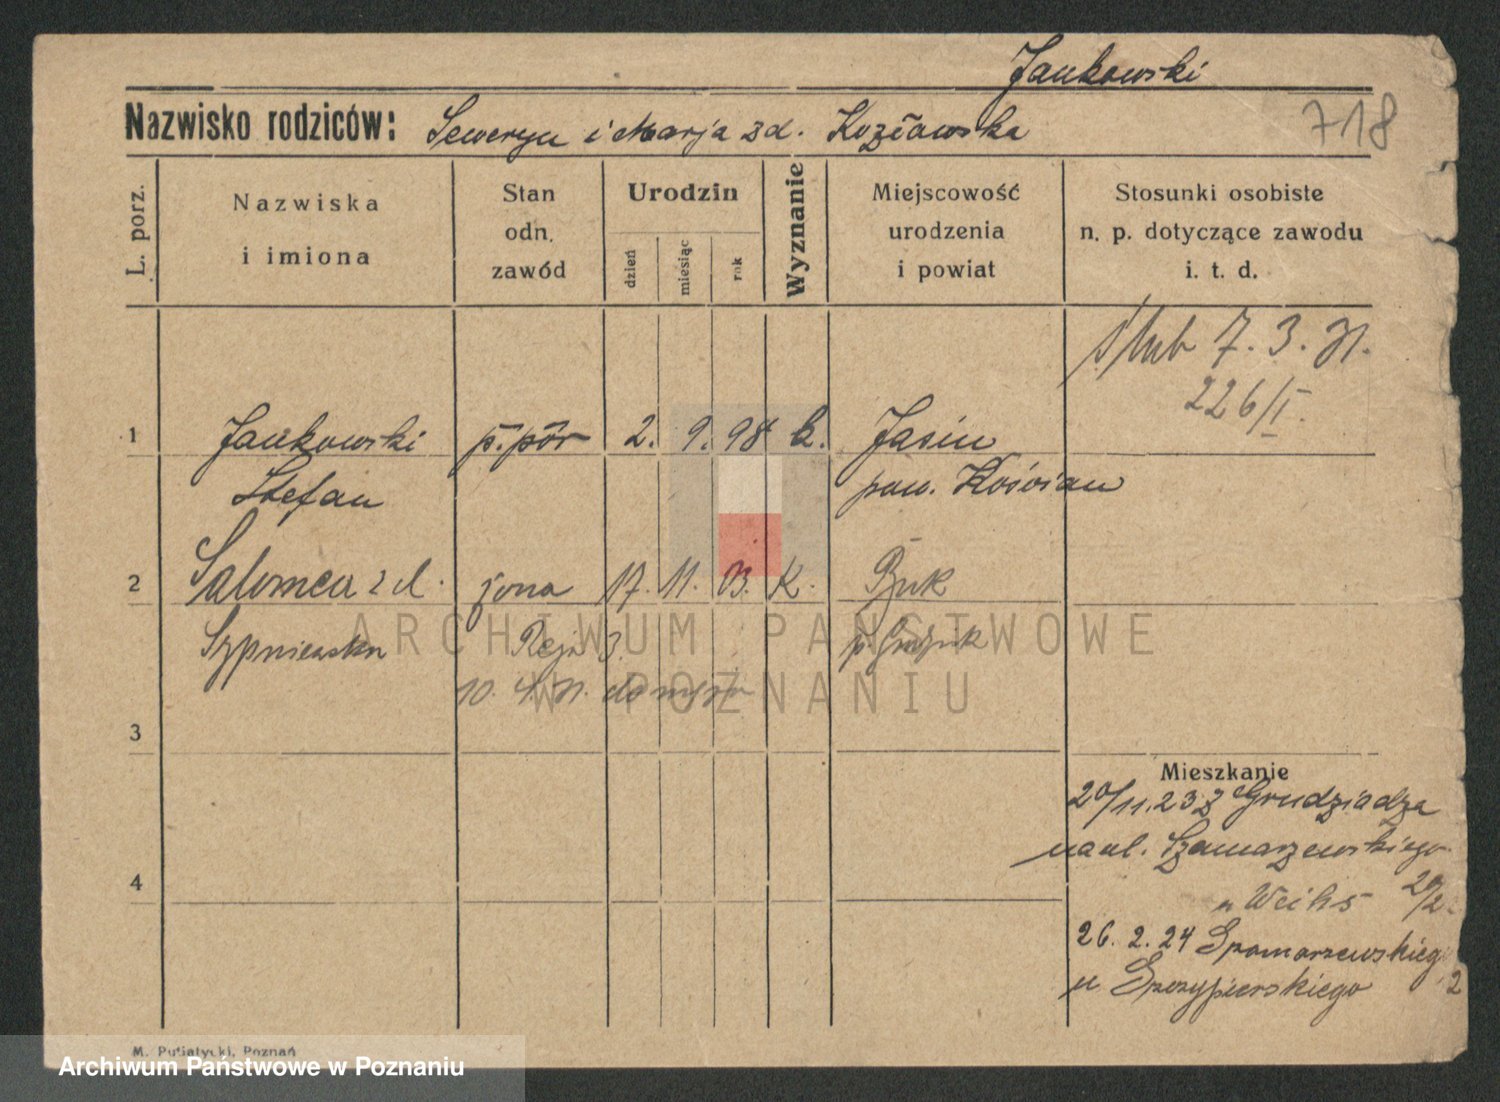 Jankowski
Nazwisko rodziców: Seweryn i Marja zd. Kozłowska
718
L. porz.
Nazwiska
i imiona
Stan
odn.
zawód
Urodzin
dzień
miesiąc
rok
Wyznanie
Miejscowość
urodzenia
i powiat
Stosunki osobiste
n. p. dotyczące zawodu
i. t. d.
ślub 7. 3. 31.
226/I.
1 Jankowski p. pór 2. 9. 98 k. Jasin
Stefan pow. Kościan
2 Salomea zd. żona 17. 11. 03. K. Buk
Sypniewska Reja 3.
10. 4. 31. do
ARCHIWUM PAŃSTWOWE
W POZNANIU
3
Mieszkanie
20/11.23 z Grudziądza
na ul. Szamarzewskiego
4
u Weihs 29/2.
26. 2. 24 Szamarzewskiego 2
u
M. Putiatycki, Poznań
Archiwum Państwowe w Poznaniu